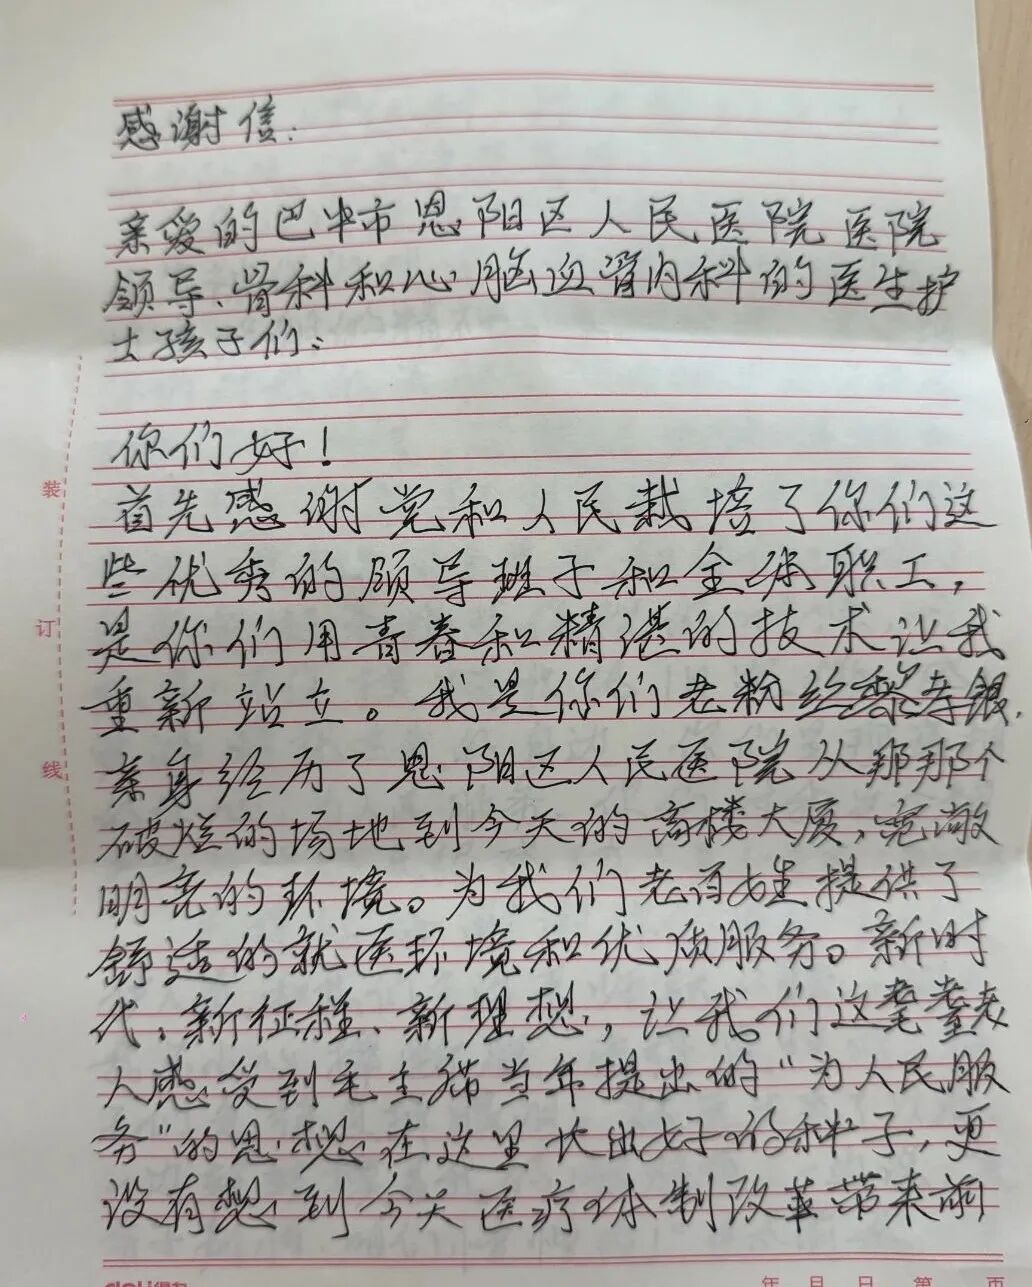 感谢信:
亲爱的巴中市恩阳区人民医院医院
领导、骨科和心脑血管内科的医生护
士孩子们:
你们好!
首先感谢党和人民栽培了你们这
些优秀的领导班子和全体职工,
是你们用青春和精湛的技术让我
重新站立。我是你们老粉丝黎寿银.
亲身经历了恩阳区人民医院从那那个
破烂的场地到今天的高楼大厦,宽敞
明亮的环境。为我们老百姓提供了
舒适的就医环境和优质服务。新时
代、新征程、新理想,让我们这耄耋老
人感受到毛主席当年提出的“为人民服
务”的思想在这里长出好的种子,更
没有想到今天医疗体制改革带来前
装
订
线
deli得力
年 月 日 第 页